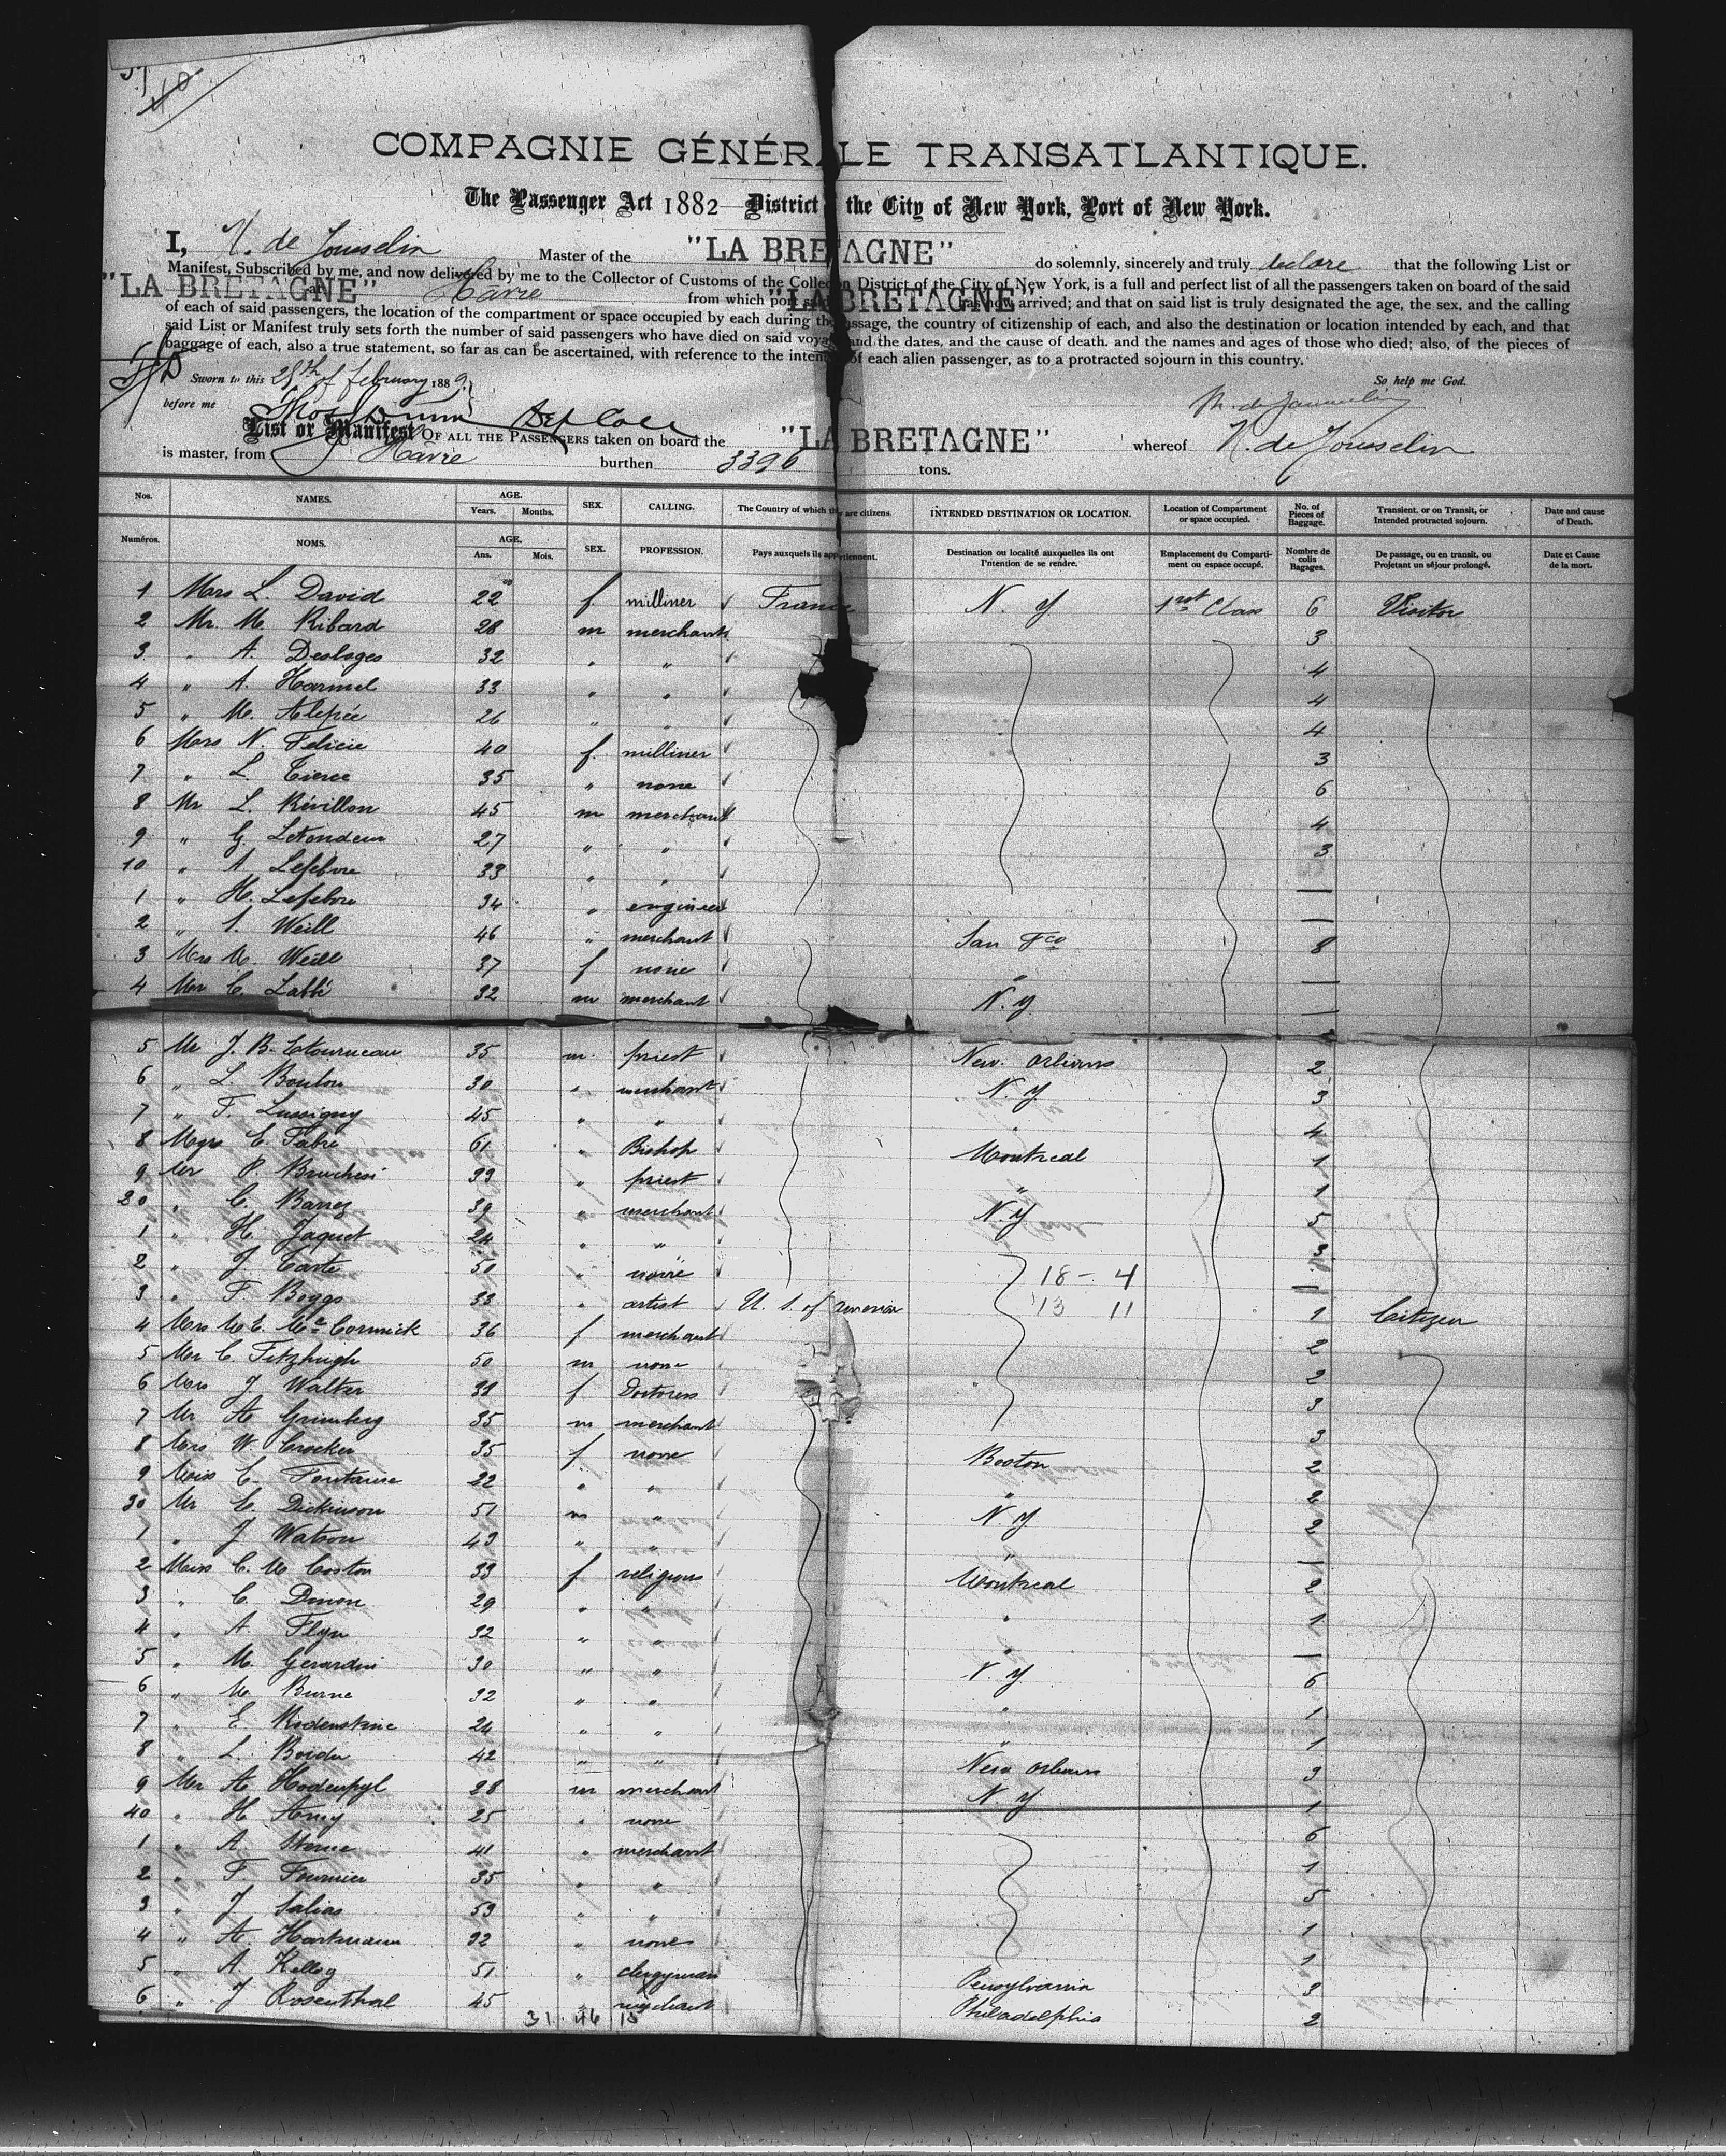 COMPAGNIE GÉNÉRALE TRANSATLANTIQUE.
The Passenger Act 1882 District the City of New York, Port of New York.
I, de Jousselin Master of the "LA BRETAGNE" do solemnly, sincerely and truly declare that the following List or
Manifest, Subscribed by me, and now delivered by me to the Collector of Customs of the Collection District of the City of New York, is a full and perfect list of all the passengers taken on board of the said
"LA BRETAGNE" at Havre from which port said "LA BRETAGNE" has now arrived; and that on said list is truly designated the age, the sex, and the calling
of each of said passengers, the location of the compartment or space occupied by each during the passage, the country of citizenship of each, and also the destination or location intended by each, and that
said List or Manifest truly sets forth the number of said passengers who have died on said voyage and the dates, and the cause of death, and the names and ages of those who died; also, of the pieces of
baggage of each, also a true statement, so far as can be ascertained, with reference to the inten of each alien passenger, as to a protracted sojourn in this country.
Sworn to this 28th of february 1889 So help me God.
before me
List or Manifest OF ALL THE PASSENGERS taken on board the "LA BRETAGNE" whereof de Jousselin
is master, from Havre burthen 3396 tons.
Nos. NAMES. AGE. Years. Months. SEX. CALLING. The Country of which they are citizens. INTENDED DESTINATION OR LOCATION. Location of Compartment or space occupied. No. of Pieces of Baggage. Transient, or on Transit, or Intended protracted sojourn. Date and cause of Death.
Numéros. NOMS. AGE. Ans. Mois. SEX. PROFESSION. Pays auxquels ils appartiennent. Destination ou localité auxquelles ils ont l'intention de se rendre. Emplacement du Compartiment ou espace occupé. Nombre de colis Bagages. De passage, ou en transit, ou Projetant un séjour prolongé. Date et Cause de la mort.
1 Mrs L. David 22 f. milliner France N. Y 1rst Class 6 Visitor
2 Mr. M. Ribard 28 m merchant 3
3 " A. Desloges 32 " " 4
4 " A. Harmel 33 " " 4
5 " M. Alepée 26 " " 4
6 Mrs N. Felicie 40 f. milliner 3
7 " L. Tierce 35 " none 6
8 Mr L. Révillon 45 m merchant 4
9 " G. Letondeur 27 " " 3
10 " A. Lefebvre 33 " "
1 " H. Lefebvre 34 " engineer
2 " Weill 46 " merchant San Fco 8
3 Mrs M. Weill 37 f none "
4 Mr C. Labbé 32 m merchant N. Y
5 Mr J. B. Letourneau 35 m. priest New. Orleans 2
6 " L. Boulon 30 " merchant N. Y. 3
7 " F. Lussigny 45 " " " 4
8 Mgr E. Fabre 61 " Bishop Montreal 1
9 Mr P. Bruchesi 33 " priest " 1
20 " C. Barrez 39 " merchant N. Y 5
1 " H. Jaquet 24 " " 3
2 " J. Carte 50 " none 18 - 4
3 " F. Boggs 33 " artist U. S. of America 13 11 1 Citizen
4 Mrs M. E. Mc Cormick 36 f merchant 2
5 Mr C. Fitzhugh 50 m none 2
6 Mrs J Walter 31 f Doctoress 3
7 Mr A. Grimberg 35 m merchant 3
8 Mrs W. Crocker 35 f. none Boston 2
9 Miss C. Fontaine 22 " " " 2
30 Mr C. Dickinson 51 m " N. Y. 2
1 " J Watson 43 " " "
2 Miss C. M Coston 33 f religious Montreal 2
3 " C. Dinon 29 " " " 1
4 " A. Flyn 32 " " "
5 " M. Gerardin 30 " " N. Y 6
6 " M. Burne 32 " " " 1
7 " E. Rodenstine 24 " " " 1
8 " L. 42 " " New Orleans 3
9 Mr A Hodenpyl 28 m merchant N. Y. 1
40 " H Amy 25 " none 6
1 " A. Sterne 41 " merchant 1
2 " F. Fournier 35 " " 5
3 " J Salias 59 " " 1
4 " A. Hartmann 32 " none 1
5 " A. Kellog 51 " clergyman Pensylvania 3
6 " J Rosenthal 45 " merchant Philadelphia 2
31 46 15